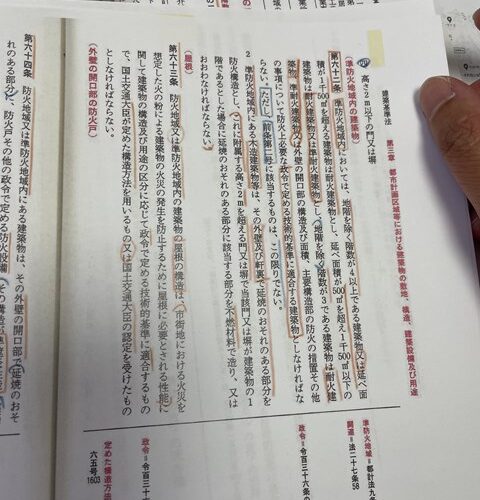 建築基準法　第三章　都市計画区域等における建築物の敷地、構造、建築設備及び用途
高さ2m以下の門又は塀
（準防火地域内の建築物）
第六十二条　準防火地域内においては、地階を除く階数が4以上である建築物又は延べ面
積が1千500㎡を超える建築物は耐火建築物とし、延べ面積が500㎡を超え1千500㎡以下の
建築物は耐火建築物又は準耐火建築物とし、地階を除く階数が3である建築物は耐火建
築物、準耐火建築物又は外壁の開口部の構造及び面積、主要構造部の防火の措置その他
の事項について防火上必要な政令で定める技術的基準に適合する建築物としなければな
らない。ただし、前条第二号に該当するものは、この限りでない。
2　準防火地域内にある木造建築物等は、その外壁及び軒裏で延焼のおそれのある部分を
防火構造とし、これに附属する高さ2mを超える門又は塀で当該門又は塀が建築物の1
階であるとした場合に延焼のおそれのある部分に該当する部分を不燃材料で造り、又は
おおわなければならない。
（屋根）
第六十三条　防火地域又は準防火地域内の建築物の屋根の構造は、市街地における火災を
想定した火の粉による建築物の火災の発生を防止するために屋根に必要とされる性能に
関して建築物の構造及び用途の区分に応じて政令で定める技術的基準に適合するもの
で、国土交通大臣が定めた構造方法を用いるもの又は国土交通大臣の認定を受けたもの
としなければならない。
（外壁の開口部の防火戸）
第六十四条　防火地域又は準防火地域内にある建築物は、その外壁の開口部で延焼のおそ
れのある部分に、防火戸その他の政令で定める防火設備
準防火地域＝都計法九
関連＝法二十七条 58
政令＝令百三十六条
政令＝令百三十
定めた構造方法
六五号 1603